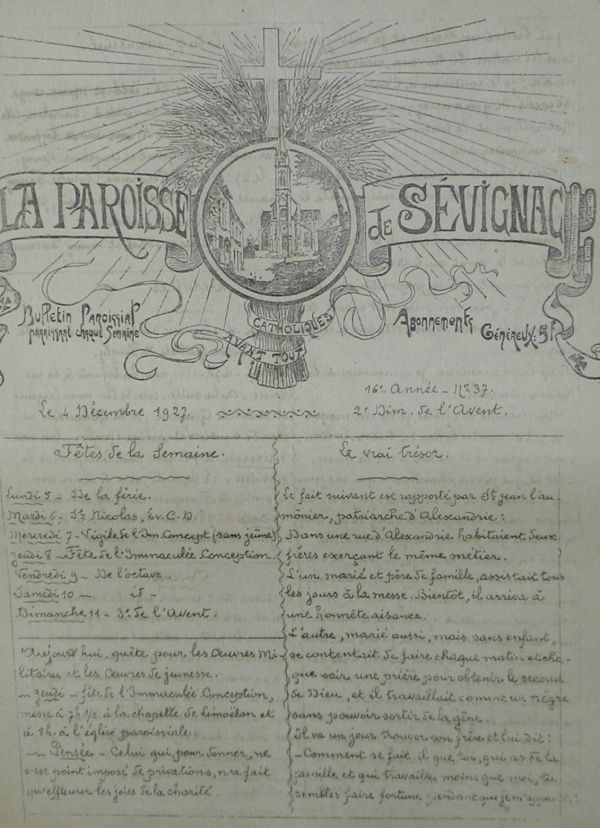 LA PAROISSE de SÉVIGNAC
Bulletin Paroissial
paraissant chaque Semaine
CATHOLIQUES
AVANT TOUT
Abonnements
Généreux: 5f
16e Année - No 37.
Le 4 Décembre 1927.
2e Dim. de l'Avent.
Fêtes de la Semaine.
Lundi 5 - De la férie.
Mardi 6 - St Nicolas, Ev. C. D.
Mercredi 7 - Vigile de l'Im. Concept (sans jeûne)
Jeudi 8 - Fête de l'Immaculée Conception.
Vendredi 9 - De l'octave.
Samedi 10 - id -
Dimanche 11 - 3e de l'Avent.
Aujourd'hui, quête pour les Œuvres Mi-
litaires et les Œuvres de jeunesse.
- Jeudi - fête de l'Immaculée Conception,
messe à 7h 1/2 à la chapelle de Limoëlan et
à 8h. à l'église paroissiale.
- Pensée - Celui qui, pour donner, ne
s'est point imposé de privations, n'a fait
qu'effleurer les joies de la charité.
Le vrai trésor.
Le fait suivant est rapporté par St Jean l'au-
mônier, patriarche d'Alexandrie:
Dans une rue d'Alexandrie habitaient deux
frères exerçant le même métier.
L'un marié et père de famille, assistait tous
les jours à la messe. Bientôt, il arriva à
une honnête aisance.
L'autre, marié aussi, mais sans enfant,
se contentait de faire chaque matin et cha-
que soir une prière pour obtenir le secours
de Dieu, et il travaillait comme un nègre
sans pouvoir sortir de la gêne.
Il va un jour trouver son frère et lui dit:
- Comment se fait-il que, toi, qui as de la
famille et qui travailles moins que moi, tu
sembles faire fortune, pendant que je